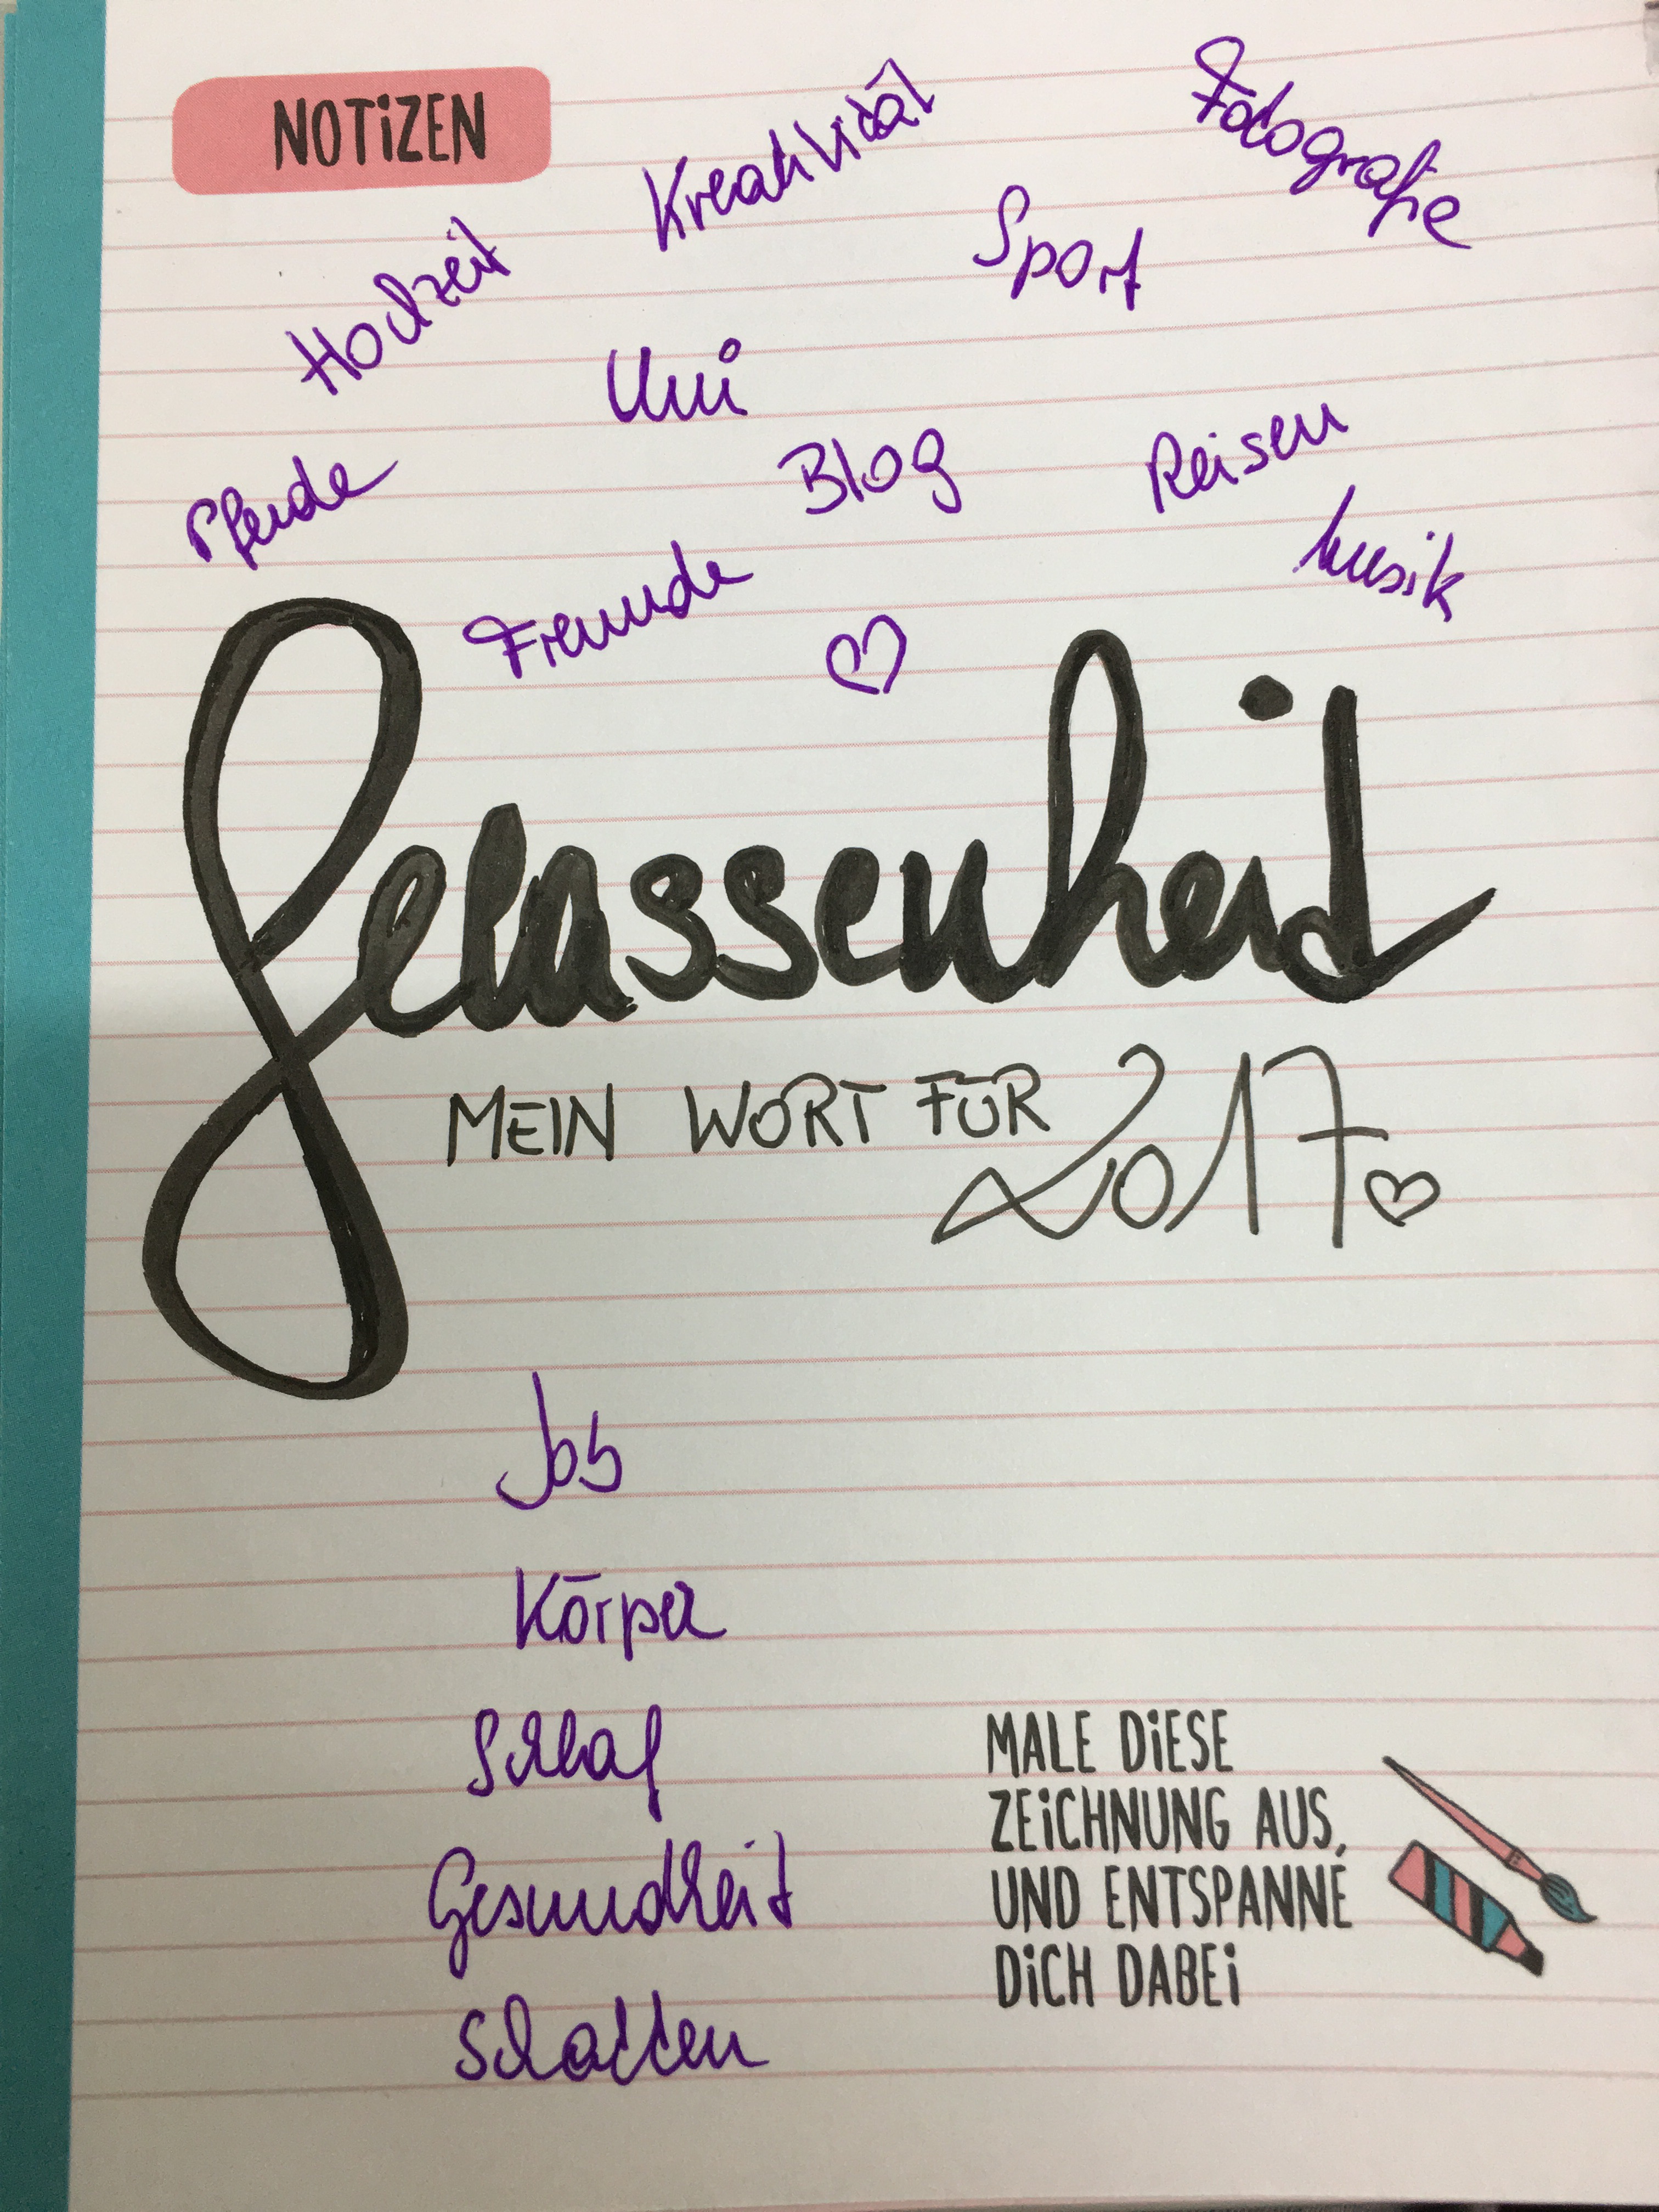 NOTIZEN
Kreativität
Fotografie
Hochzeit
Sport
Uni
Pferde
Blog
Reisen
Musik
Freunde
Gelassenheit
MEIN WORT FÜR 2017
Job
Körper
Schlaf
Gesundheit
Schatten
MALE DIESE
ZEICHNUNG AUS,
UND ENTSPANNE
DICH DABEI